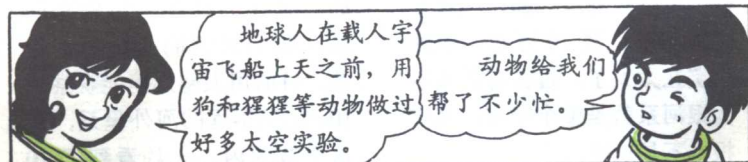 地球人在载人宇
宙飞船上天之前，用
狗和猩猩等动物做过
好多太空实验。
动物给我们
帮了不少忙。